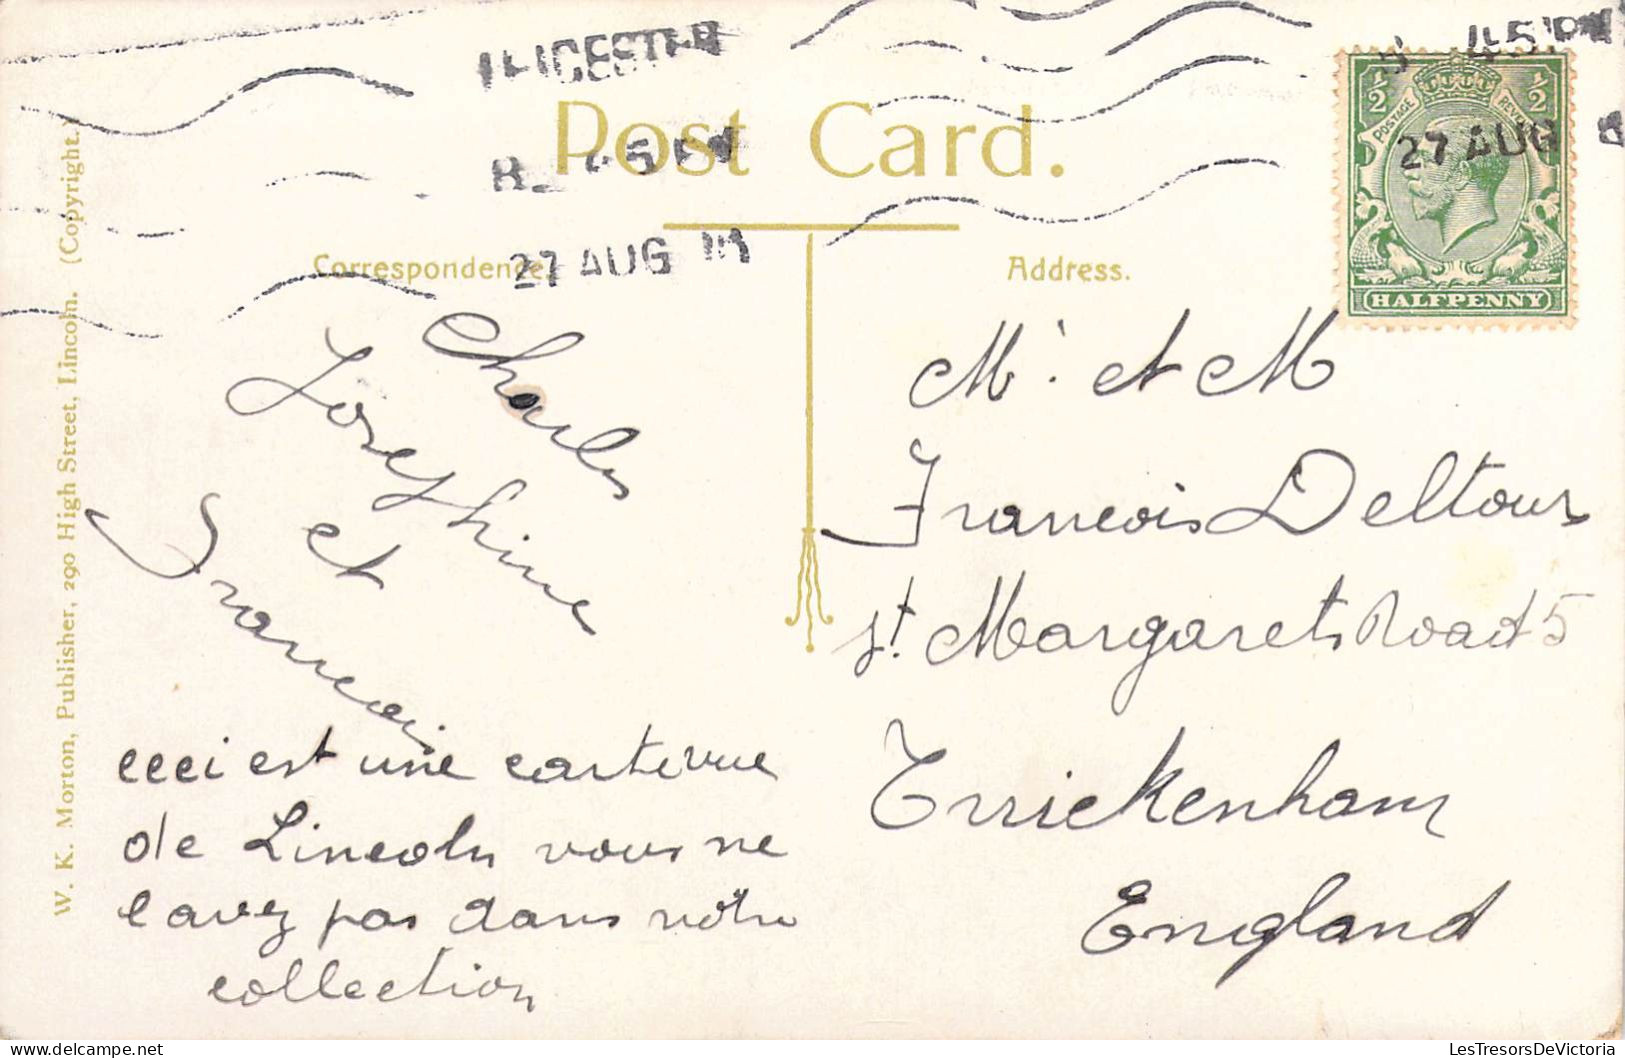 LEICESTER
8 45 PM
27 AUG
45 PM
27 AUG
Post Card.
Correspondence
Address.
½ ½
POSTAGE REVENUE
HALFPENNY
W. K. Morton, Publisher, 290 High Street, Lincoln. (Copyright.)
Charles
Josephine
et
Francois
ceci est une carte vue
de Lincoln vous ne
l avez pas dans votre
collection
Mr. et M
Francois Deltour
St. Margarets Road 5
Twickenham
England
LesTresorsDeVictoria